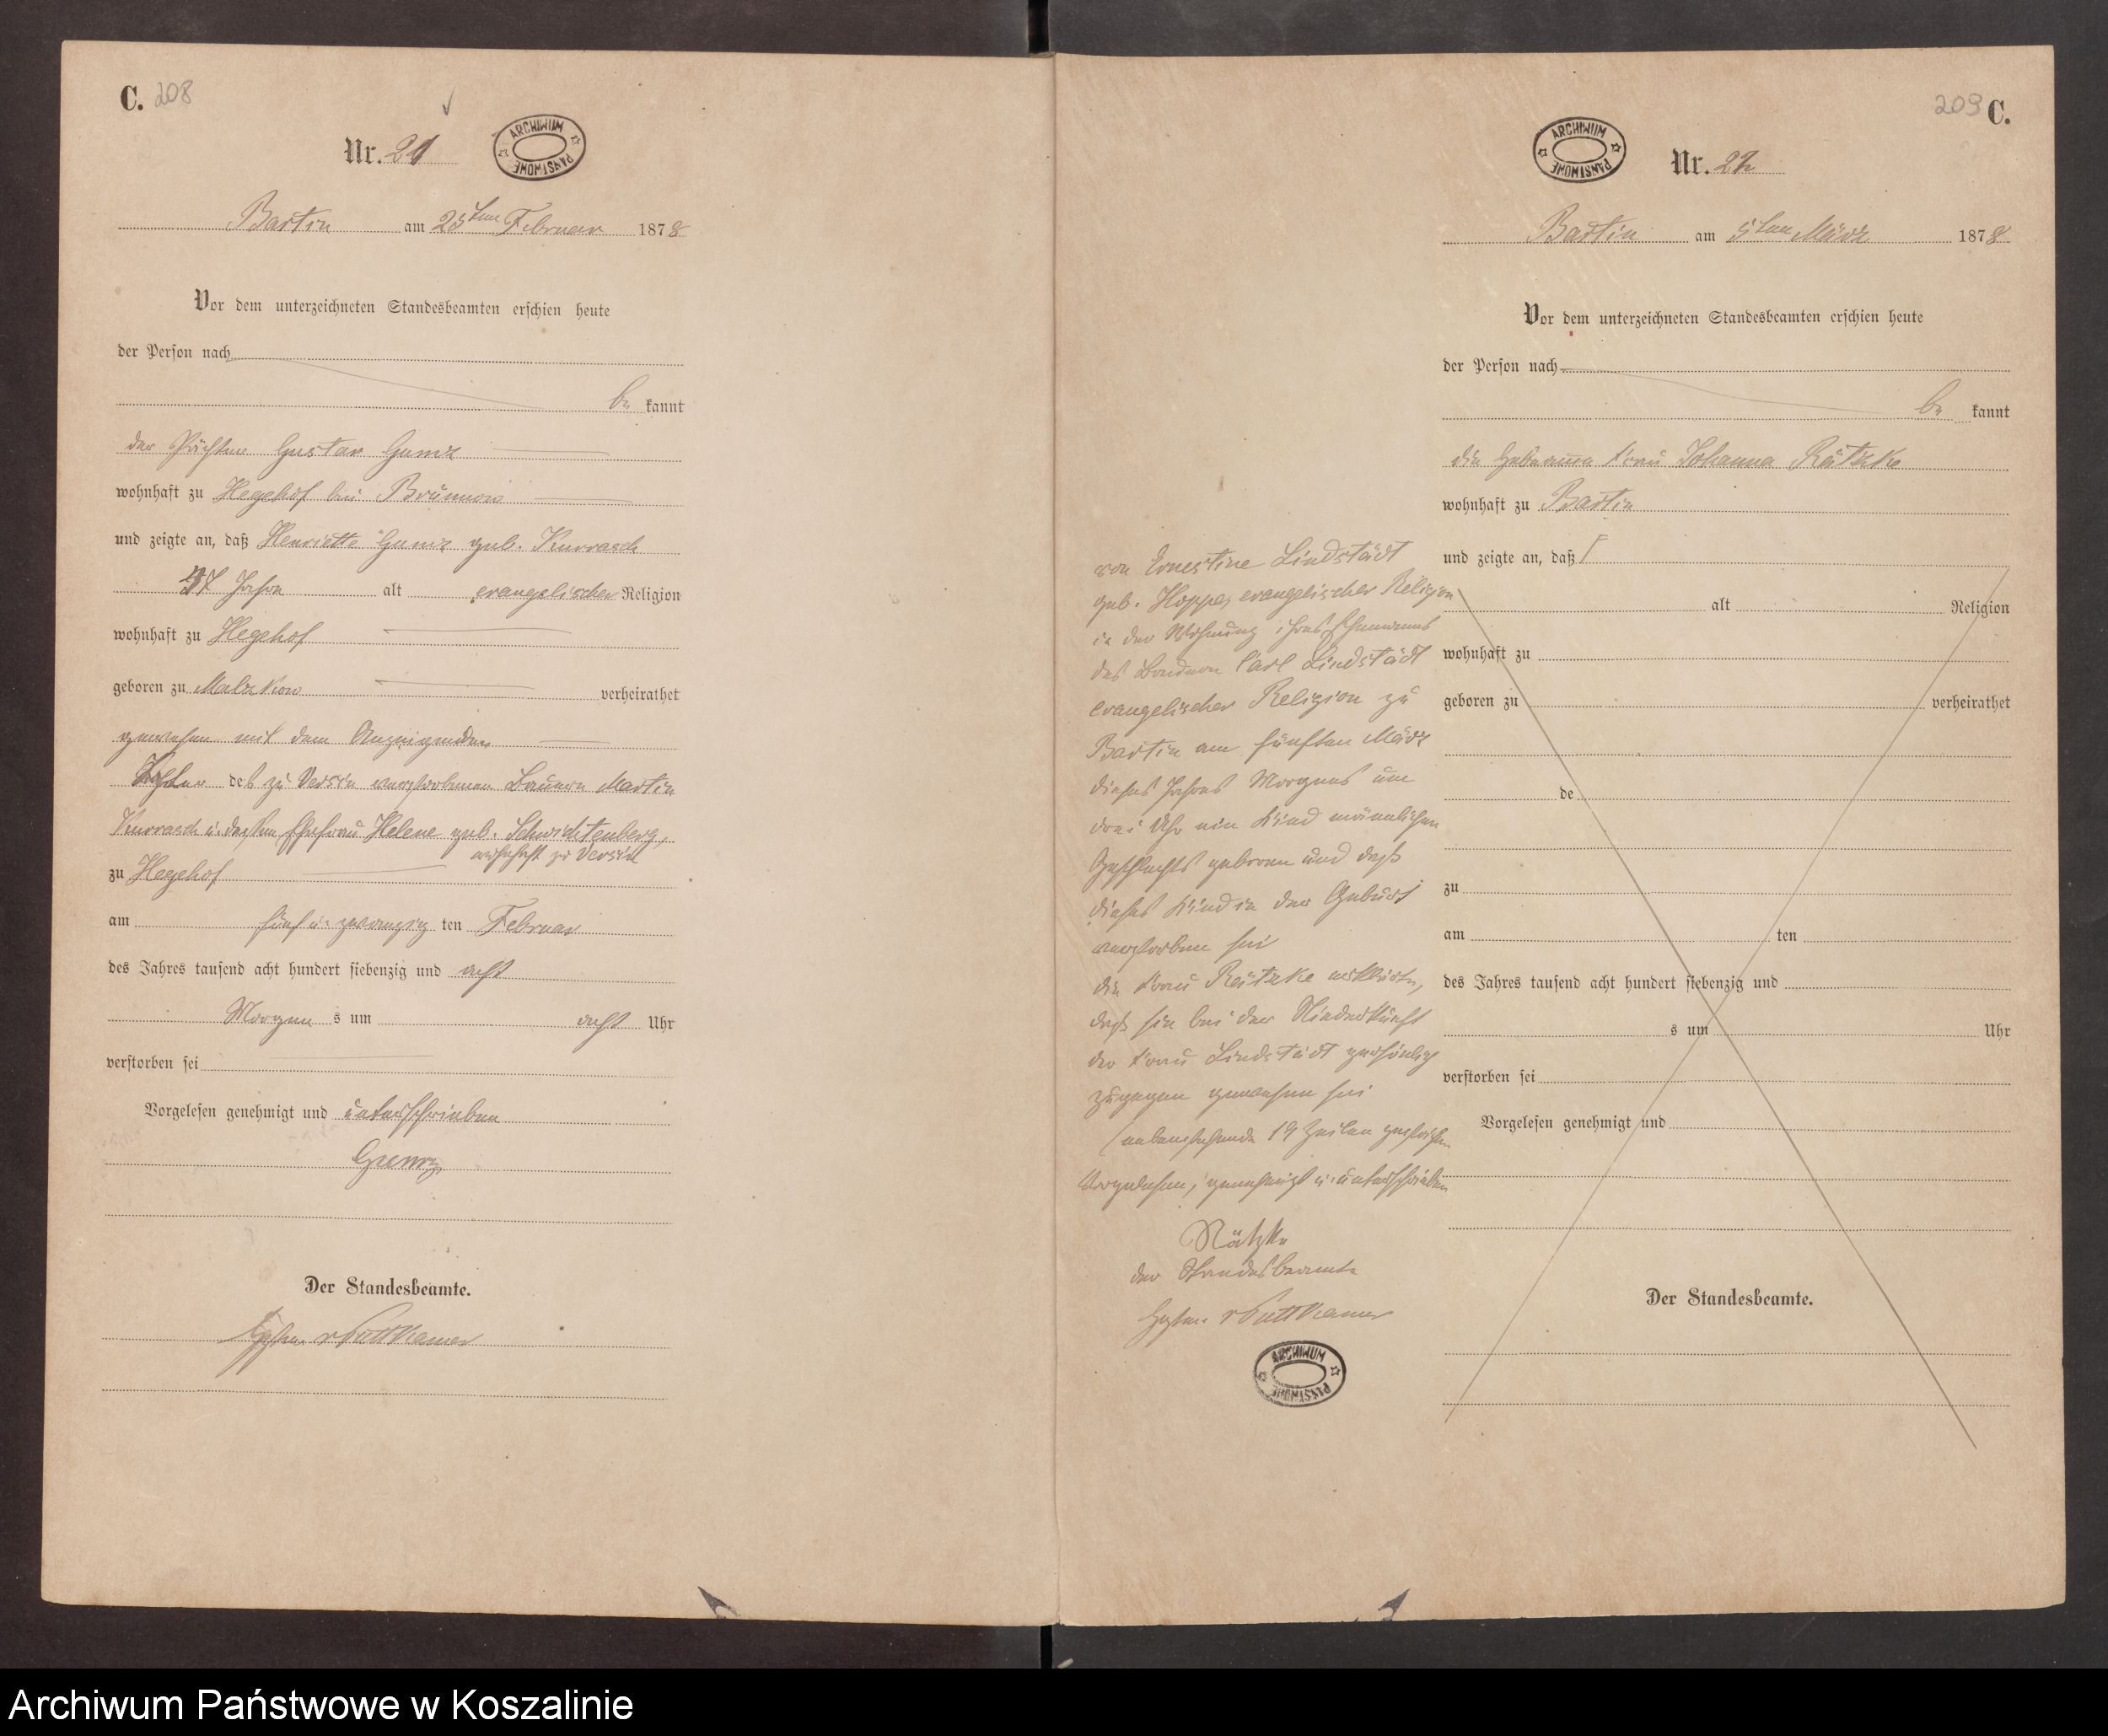 C. 208
Nr. 21
ARCHIWUM PAŃSTWOWE
Bartin am 25ten Februar 1878
Vor dem unterzeichneten Standesbeamten erschien heute
der Person nach
be kannt
der Pächter Gustav Gumz
wohnhaft zu Hegehof bei Brünnow
und zeigte an, daß Henriette Gumz geb. Kurrasch
37 Jahre alt evangelischer Religion
wohnhaft zu Hegehof
geboren zu Malzkow verheirathet
gewesen mit dem Anzeigenden
Tochter des zu Versin verstorbenen Bauern Martin
Kurrasch u. dessen Ehefrau Helene geb. Schwichtenberg,
wohnhaft zu Versin
zu Hegehof
am fünf u. zwanzig ten Februar
des Jahres tausend acht hundert siebenzig und acht
Morgen s um acht Uhr
verstorben sei
Vorgelesen genehmigt und unterschrieben
Gumz
Der Standesbeamte.
v Puttkamer
209 C.
ARCHIWUM PAŃSTWOWE
Nr. 22
Bartin am 5ten März 1878
Vor dem unterzeichneten Standesbeamten erschien heute
der Person nach
be kannt
die Hebamme Frau Johanna Rätzke
wohnhaft zu Bartin
und zeigte an, daß
alt Religion
wohnhaft zu
geboren zu verheirathet
de
zu
am ten
des Jahres tausend acht hundert siebenzig und
s um Uhr
verstorben sei
Vorgelesen genehmigt und
Der Standesbeamte.
von Ernestine Lindstädt
geb. Hoppe, evangelischer Religion
in der Wohnung ihres Ehemanns
des Bauern Carl Lindstädt
evangelischer Religion zu
Bartin am fünften März
dieses Jahres Morgens um
drei Uhr ein Kind männlichen
Geschlechts geboren und daß
dieses Kind in der Geburt
verstorben sei
die Frau Rätzke erklärte,
daß sie bei der Niederkunft
der Frau Lindstädt persönlich
zugegen gewesen sei
nebenstehende 19 Zeilen gestrichen
Vorgelesen, genehmigt u. unterschrieben
Rätzke
der Standesbeamte
v Puttkamer
ARCHIWUM PAŃSTWOWE
Archiwum Państwowe w Koszalinie